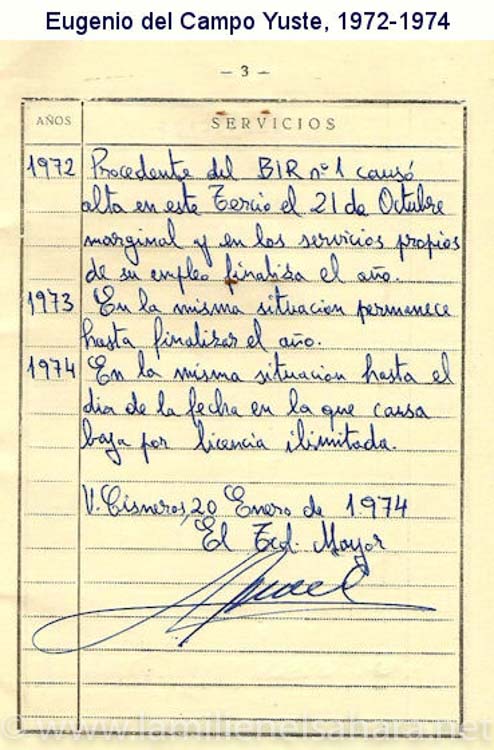 Eugenio del Campo Yuste, 1972-1974
— 3 —
AÑOS SERVICIOS
1972 Procedente del BIR nº 1 causó
alta en este Tercio el 21 de Octubre
marginal y en los servicios propios
de su empleo finaliza el año.
1973 En la misma situacion permanece
hasta finalizar el año.
1974 En la misma situacion hasta el
dia de la fecha en la que causa
baja por licencia ilimitada.
V. Cisneros, 20 Enero de 1.974
El Mayor
© www.lamilienelsahara.net